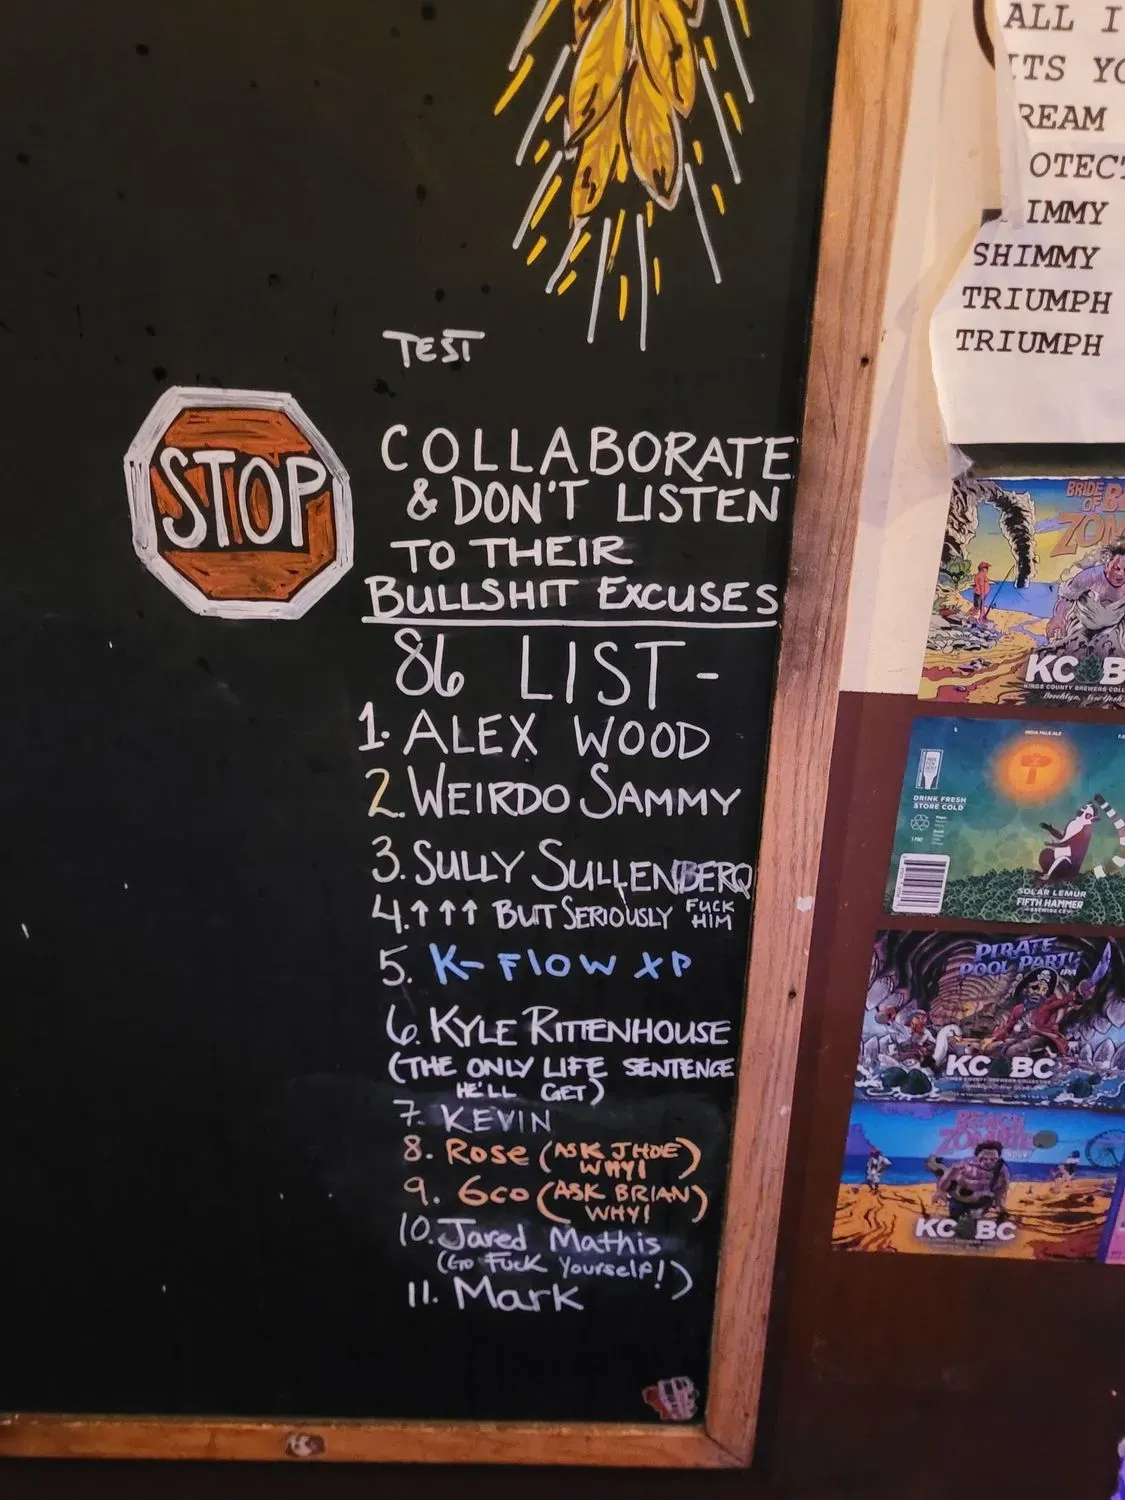 TEST
STOP
COLLABORATE
& DON'T LISTEN
TO THEIR
BULLSHIT EXCUSES
86 LIST-
1. ALEX WOOD
2. WEIRDO SAMMY
3. SULLY SULLENBERG
4. ↑↑↑ BUT SERIOUSLY FUCK HIM
5. K-FLOW XP
6. KYLE RITTENHOUSE
(THE ONLY LIFE SENTENCE
HE'LL GET)
7. KEVIN
8. ROSE (ASK JHDE
WHY!)
9. Gco (ASK BRIAN
WHY!)
10. Jared Mathis
(Go Fuck Yourself!)
11. Mark
ALL I
ITS YO
REAM
OTECT
IMMY
SHIMMY
TRIUMPH
TRIUMPH
BRIDE
OF B
ZOM
KC B
KINGS COUNTY BREWERS COLL
Brooklyn, New York
INDIA PALE ALE
DRINK FRESH
STORE COLD
SOLAR LEMUR
FIFTH HAMMER
BREWING CO
PIRATE
POOL PARTY
IPA
KC BC
BEACH
ZOMBIE
KC BC